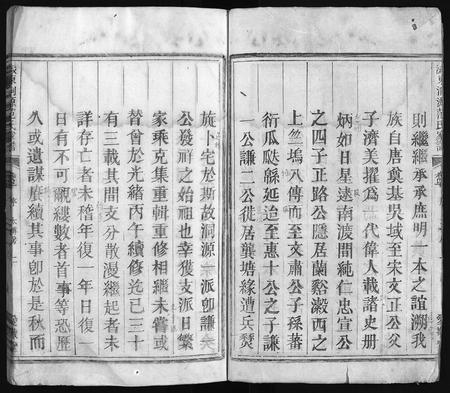 則繼繼承承庶明一本之誼溯我
族自唐奠基吳域至宋文正公父
子濟美擢為一代偉人載諸史册
炳如日星遠南渡間純仁忠宣公
之四子正路公隱居蘭谿瀫西之
上竺塢八傳而至文肅公子孫蕃
衍瓜瓞緜延迨至惠十公之子謙
一公謙二公徙居龔塘緣遭兵燹
族卜宅於斯故洞源一派卽謙
公發祥之始祖也幸獲支派日繁
家乘克集重輯重修相繼未嘗或
替曾於光緒丙午續修迄已三十
有三載其間支分散漫繼起者未
詳存亡者未稽年復一年日復一
日有不可覼縷數者首事等恐歷
久或遺謀賡續其事卽於是秋而